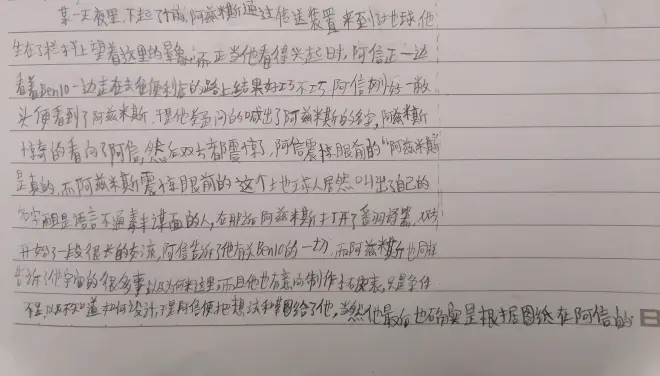 某一天夜里,下起了小雨,阿兹米斯通过传送装置来到了地球,他
坐在了栏杆上望着这里的景象,不正当他看得失起时,阿信正一边
看着Ben10一边走在去往便利店的路上结果好巧不巧,阿信刚好一散
头便看到了阿兹米斯,于是他疑问的喊出了阿兹米斯的名字,阿兹米斯
惊奇的看向了阿信,然后双方都震惊了,阿信震惊眼前的"阿兹米斯"
是真的,而阿兹米斯震惊眼前的这个土地球人居然叫出了自己的
名字而且是语言不通素未谋面的人,在那后阿兹米斯打开了翻译器,双方
开始了一段很长的交流,阿信告诉了他有关Ben10的一切,而阿兹米斯也同样
告诉了他宇宙的很多事以及为何来这里,而且他也有意向制作手表,只是条件
不足,以及不知道如何设计,于是阿信便把想法和图给了他,当然他最后也确实是根据图纸在阿信的